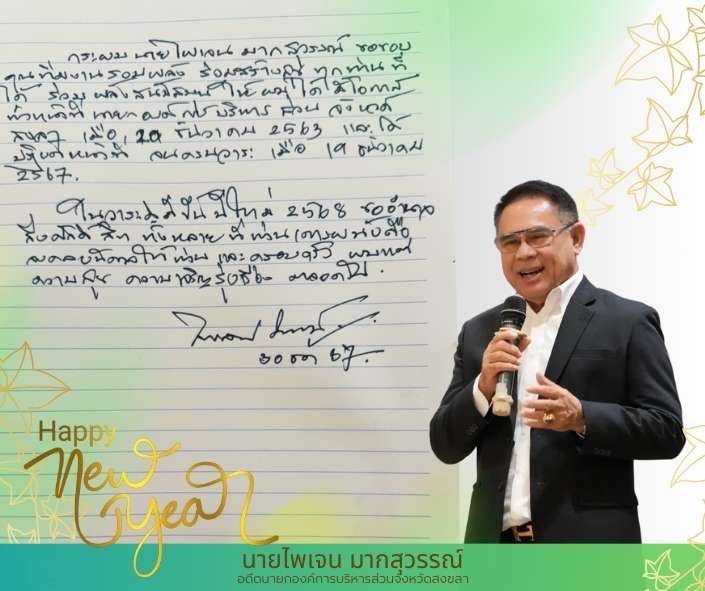 กระผม นายไพเจน มากสุวรรณ์ ขอขอบ
คุณทีมงานรวมพลัง ร่วมสร้างสุข ทุกท่าน ที่
ได้ ร่วม พลังสนับสนุน ให้ ผม ได้ มีโอกาส
ทำหน้าที่ นายก องค์การบริหาร ส่วน จังหวัด
สงขลา เมื่อ 20 ธันวาคม 2563 และ ได้
ปฏิบัติ หน้าที่ จนครบวาระ เมื่อ 19 ธันวาคม
2567.
ในวาระดิถีขึ้นปีใหม่ 2568 ขออำนาจ
สิ่งศักดิ์สิทธิ์ ทั้งหลาย ที่ ท่านเคารพนับถือ
ดลบันดาลให้ ท่าน และครอบครัว พบแต่
ความสุข ความเจริญรุ่งเรือง ตลอดไป.
30 ธค 67.
Happy
New
Year
นายไพเจน มากสุวรรณ์
อดีตนายกองค์การบริหารส่วนจังหวัดสงขลา